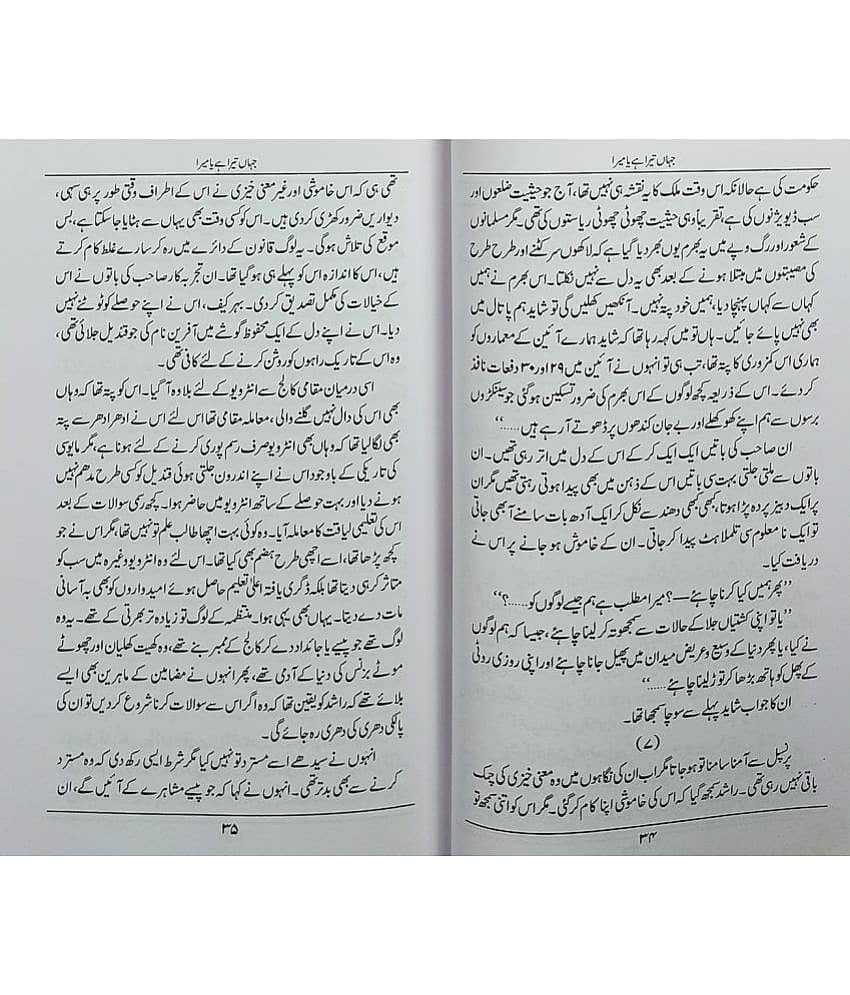 جہاں تیرا ہے یا میرا
حکومت کی ہے حالانکہ اس وقت ملک کا یہ نقشہ ہی نہیں تھا، آج جو حیثیت ضلعوں اور
سب ڈیویژنوں کی ہے، تقریباً وہی حیثیت چھوٹی چھوٹی ریاستوں کی تھی۔ مگر مسلمانوں
کے شعور اور رگ و پے میں یہ بھرم یوں بھر دیا گیا ہے کہ لاکھوں سر کٹنے اور طرح طرح
کی مصیبتوں میں مبتلا ہونے کے بعد بھی یہ دل سے نہیں نکلتا۔ اس بھرم نے ہمیں
کہاں سے کہاں پہنچا دیا، ہمیں خود پتہ نہیں۔ آنکھیں کھلیں گی تو شاید ہم پاتال میں
بھی نہیں پائے جائیں۔ ہاں تو میں کہہ رہا تھا کہ شاید ہمارے آئین کے معماروں کو
ہماری اس کمزوری کا پتہ تھا، تب ہی تو انہوں نے آئین میں ۲۹ اور ۳۰ دفعات نافذ
کر دئے۔ اس کے ذریعہ کچھ لوگوں کے اس بھرم کی ضرور تسکین ہو گئی جو سینکڑوں
برسوں سے ہم اپنے کھوکھلے اور بے جان کندھوں پر ڈھوتے آ رہے ہیں……‘‘
ان صاحب کی باتیں ایک ایک کر کے اس کے دل میں اتر رہی تھیں۔ ان
باتوں سے ملتی جلتی بہت سی باتیں اس کے ذہن میں بھی پیدا ہوتی رہتی تھیں مگر ان
پر ایک دبیز پردہ پڑا ہوتا، کبھی کبھی دھند سے نکل کر ایک آدھ بات سامنے آ بھی جاتی
تو ایک نامعلوم سی تلملاہٹ پیدا کر جاتی۔ ان کے خاموش ہو جانے پر اس نے
دریافت کیا۔
’’پھر ہمیں کیا کرنا چاہئے—؟ میرا مطلب ہے ہم جیسے لوگوں کو……؟‘‘
’’یا تو اپنی کشتیاں جلا کے حالات سے سمجھوتہ کر لینا چاہئے، جیسا کہ ہم لوگوں
نے کیا، یا پھر دنیا کے وسیع و عریض میدان میں پھیل جانا چاہئے اور اپنی روزی روٹی
کے پھل کو ہاتھ بڑھا کر توڑ لینا چاہئے……‘‘
ان کا جواب شاید پہلے سے سوچا سمجھا تھا۔
(۷)
پرنسپل سے آمنا سامنا تو ہو جاتا مگر اب ان کی نگاہوں میں وہ معنی خیزی کی چمک
باقی نہیں رہی تھی۔ راشد سمجھ گیا کہ اس کی خاموشی اپنا کام کر گئی۔ مگر اس کو اتنی سمجھ تو
۳۴
جہاں تیرا ہے یا میرا
تھی ہی کہ اس خاموشی اور غیر معنی خیزی نے اس کے اطراف وقتی طور پر ہی سہی،
دیواریں ضرور کھڑی کر دی ہیں۔ اس کو کسی وقت بھی یہاں سے ہٹایا جا سکتا ہے، بس
موقع کی تلاش ہوگی۔ یہ لوگ قانون کے دائرے میں رہ کر سارے غلط کام کرتے
ہیں، اس کا اندازہ اس کو پہلے ہی ہو گیا تھا۔ ان تجربہ کار صاحب کی باتوں نے اس
کے خیالات کی مکمل تصدیق کر دی۔ بہر کیف، اس نے اپنے حوصلے کو ٹوٹنے نہیں
دیا۔ اس نے اپنے دل کے ایک محفوظ گوشے میں آفرین نام کی جو قندیل جلائی تھی،
وہ اس کے تاریک راہوں کو روشن کرنے کے لئے کافی تھی۔
اسی درمیان مقامی کالج سے انٹرویو کے لئے بلاوہ آ گیا۔ اس کو پتہ تھا کہ وہاں
بھی اس کی دال نہیں گلنے والی، معاملہ مقامی تھا اس لئے اس نے ادھر ادھر سے پتہ
بھی لگا لیا تھا کہ وہاں بھی انٹرویو صرف رسم پوری کرنے کے لئے ہونا ہے، مگر مایوسی
کی تاریکی کے باوجود اس نے اپنے اندرون جلتی ہوئی قندیل کو کسی طرح مدھم نہیں
ہونے دیا اور بہت حوصلے کے ساتھ انٹرویو میں حاضر ہوا۔ کچھ رسمی سوالات کے بعد
اس کی تعلیمی لیاقت کا معاملہ آیا۔ وہ کوئی بہت اچھا طالب علم تو نہیں تھا، مگر اس نے جو
کچھ پڑھا تھا، اسے اچھی طرح ہضم بھی کیا تھا۔ اس لئے وہ انٹرویو وغیرہ میں سب کو
متاثر کر ہی دیتا تھا بلکہ ڈگری یافتہ اعلیٰ تعلیم حاصل ہوئے امیدواروں کو بھی بہ آسانی
مات دے دیتا۔ یہاں بھی یہی ہوا۔ منتظمہ کے لوگ تو زیادہ تر بھرتی کے تھے۔ یہ وہ
لوگ تھے جو پیسے یا جائداد دے کر کالج کے ممبر بنے تھے، وہ کھیت کھلیان اور چھوٹے
موٹے بزنس کی دنیا کے آدمی تھے، پھر انہوں نے مضامین کے ماہرین بھی ایسے
بلائے تھے کہ راشد کو یقین تھا کہ وہ اگر اس سے سوالات کرنا شروع کر دیں تو ان کی
پالکی دھری کی دھری رہ جائے گی۔
انہوں نے سیدھے اسے مسترد تو نہیں کیا مگر شرط ایسی رکھ دی کہ وہ مسترد
کرنے سے بھی بدتر تھی۔ انہوں نے کہا کہ جو پیسے مشاہرے کے آئیں گے، ان
۳۵